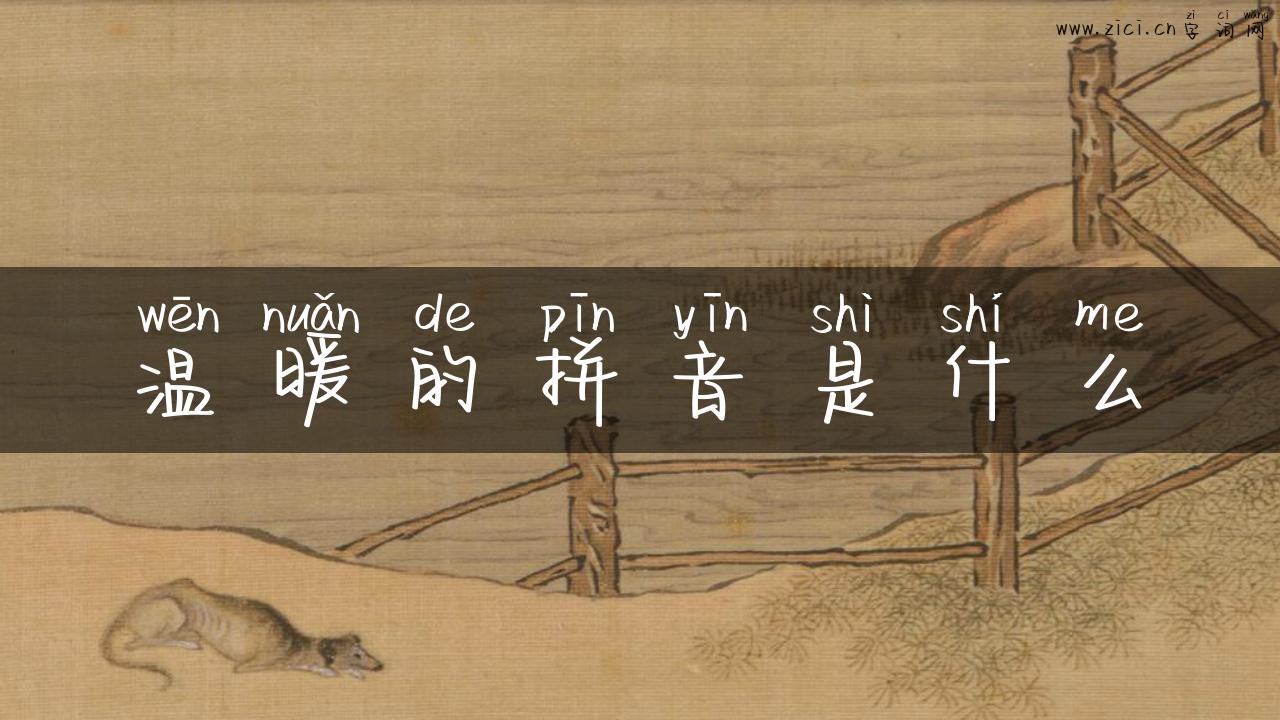 zì cí wǎng
www.zici.cn字词网
wēn nuǎn de pīn yīn shì shí me
温暖的拼音是什么